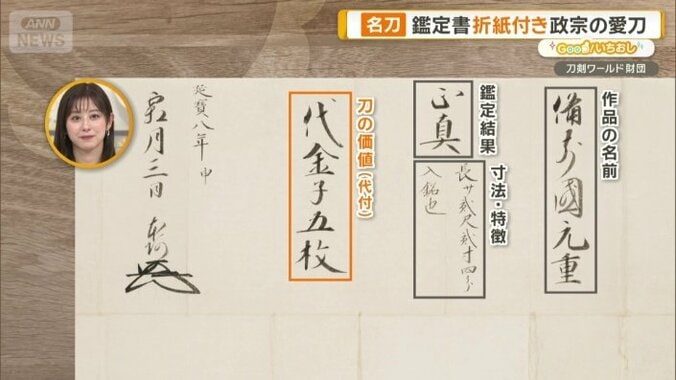 ANN
NEWS
名刀 鑑定書折紙付き政宗の愛刀
Good!いちおし
刀剣ワールド財団
作品の名前
備前國元重
鑑定結果
正真
寸法・特徴
長サ貳尺貳寸四分
入銘也
刀の価値(代付)
代金子五枚
延寶八年申
三日